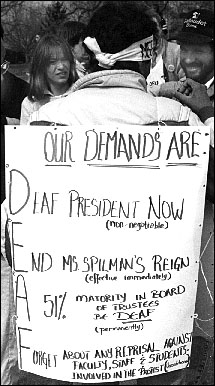 OUR DEMANDS ARE:
DEAF PRESIDENT NOW
(non-negotiable)
END MS. SPILMAN'S REIGN
(effective immediately)
51% MAJORITY IN BOARD
OF TRUSTEES
BE DEAF
(permanently)
FORGET ABOUT ANY REPRISAL AGAINST
FACULTY, STAFF & STUDENTS
INVOLVED IN THE PROTEST